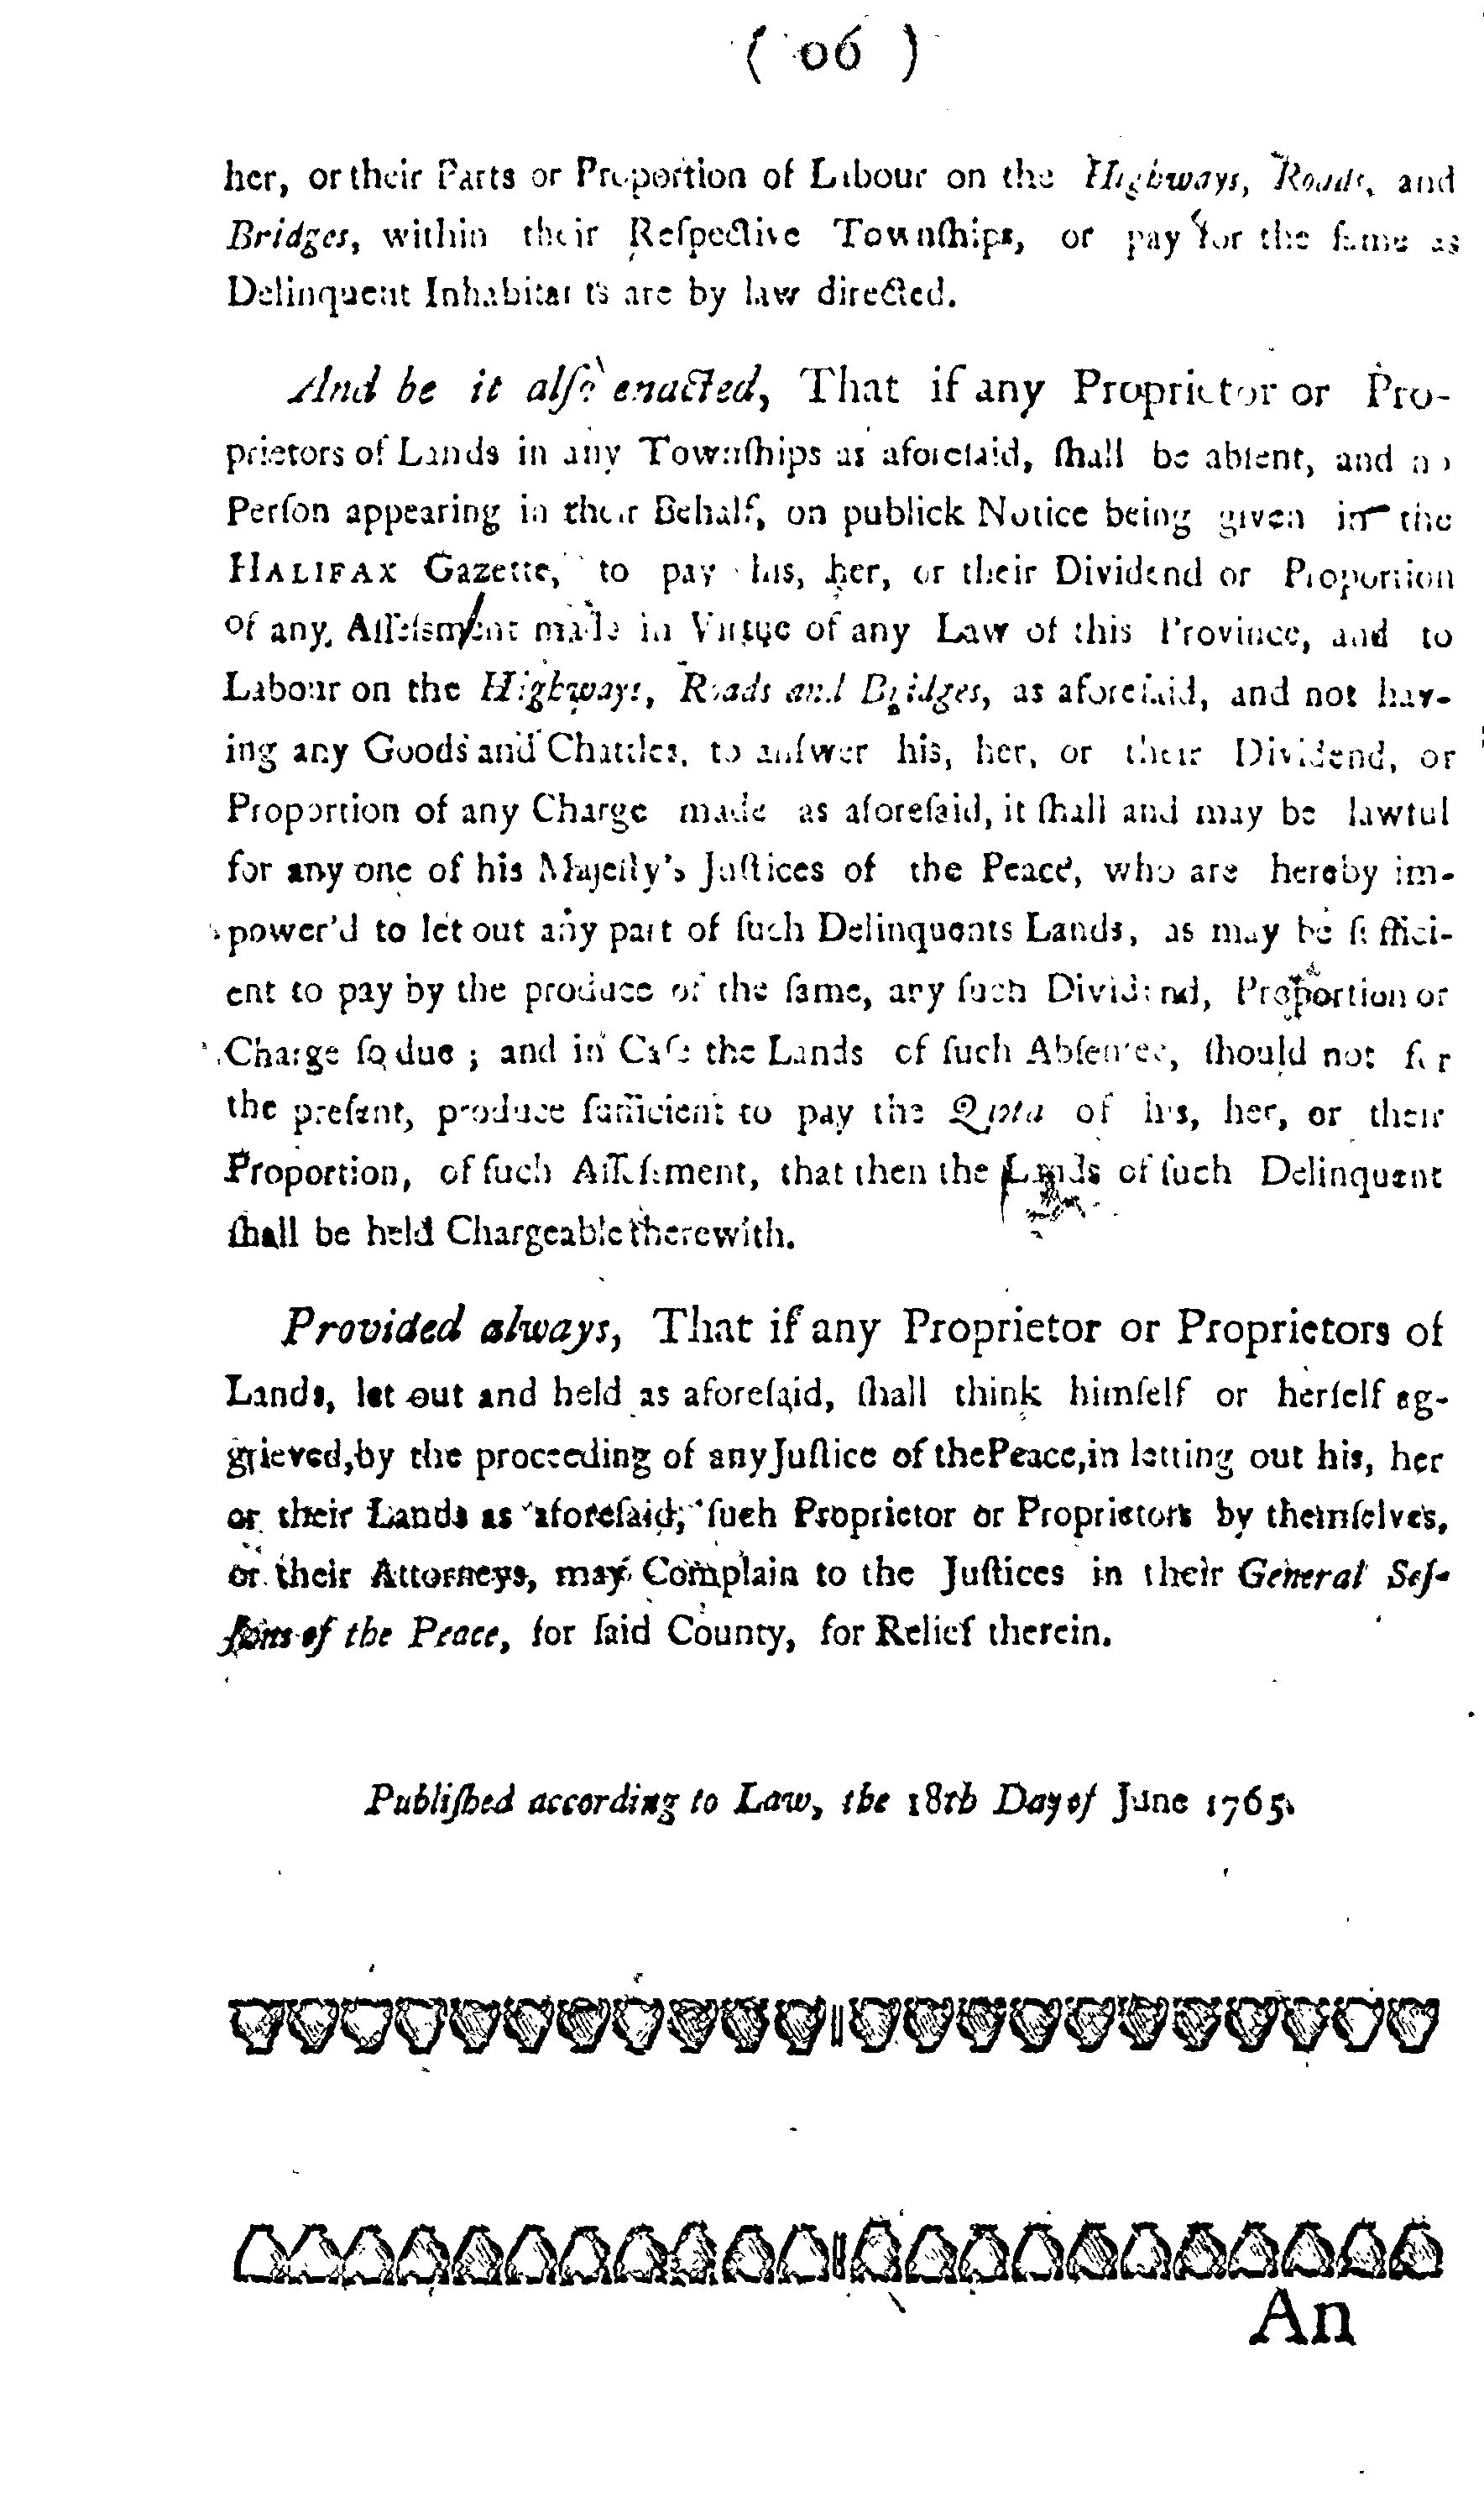 ( 06 )
her, or their Parts or Proportion of Labour on the Highways, Roads, and
Bridges, within their Reſpective Townſhips, or pay for the ſame as
Delinquent Inhabitants are by law directed.
And be it alſo enacted, That if any Proprietor or Pro-
prietors of Lands in any Townſhips as aforeſaid, ſhall be abſent, and no
Perſon appearing in their Behalf, on publick Notice being given in the
HALIFAX Gazette, to pay his, her, or their Dividend or Proportion
of any Aſſeſsment made in Virtue of any Law of this Province, and to
Labour on the Highways, Roads and Bridges, as aforeſaid, and not hav-
ing any Goods and Chattles, to anſwer his, her, or their Dividend, or
Proportion of any Charge made as aforeſaid, it ſhall and may be lawful
for any one of his Majeſty's Juſtices of the Peace, who are hereby im-
power'd to let out any part of ſuch Delinquents Lands, as may be ſuffici-
ent to pay by the produce of the ſame, any ſuch Dividend, Proportion or
Charge ſo due ; and in Caſe the Lands of ſuch Abſentee, ſhould not for
the preſent, produce ſufficient to pay the Quota of his, her, or their
Proportion, of ſuch Aſſeſsment, that then the Lands of ſuch Delinquent
ſhall be held Chargeable therewith.
Provided always, That if any Proprietor or Proprietors of
Lands, let out and held as aforeſaid, ſhall think himſelf or herſelf ag-
grieved, by the proceeding of any Juſtice of the Peace, in letting out his, her
or their Lands as aforeſaid, ſuch Proprietor or Proprietors by themſelves,
or their Attorneys, may Complain to the Juſtices in their General Seſ-
ſions of the Peace, for ſaid County, for Relief therein.
Publiſhed according to Law, the 18th Day of June 1765.
An